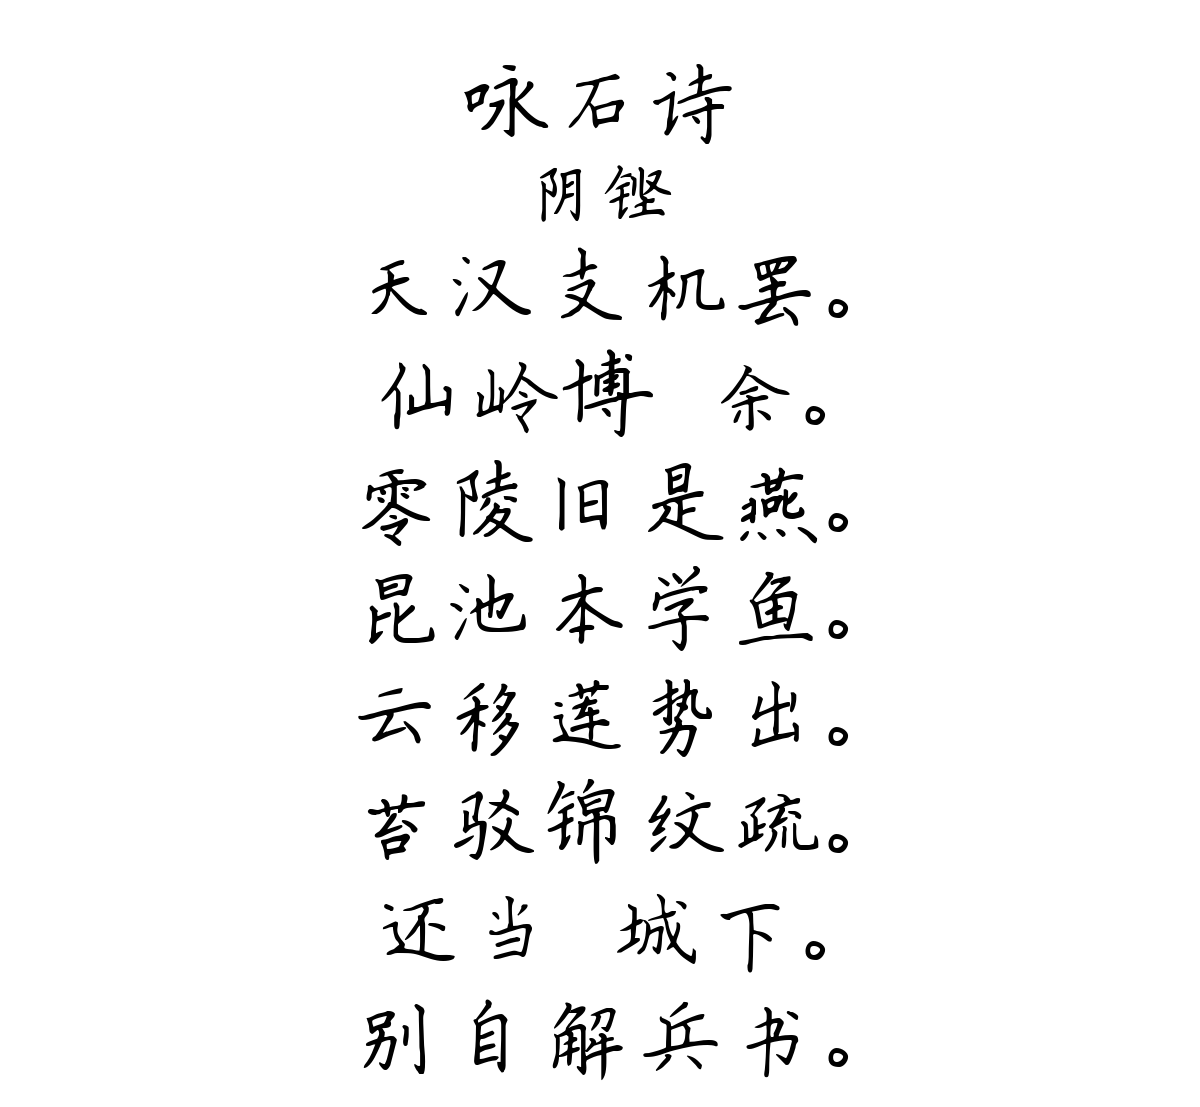 咏石诗
阴铿
天汉支机罢。
仙岭博 余。
零陵旧是燕。
昆池本学鱼。
云移莲势出。
苔驳锦纹疏。
还当 城下。
别自解兵书。